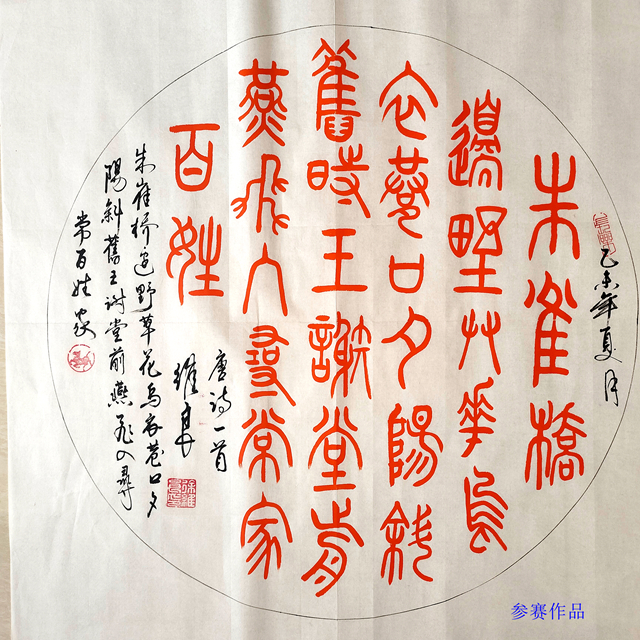 乙未年夏月
朱雀橋
邊野艸華烏
衣巷口夕陽斜
舊時王謝堂前
燕飛入尋常家
百姓
唐诗一首
朱雀桥边野草花烏衣巷口夕
陽斜舊王谢堂前燕飛入尋
常百姓家
参赛作品